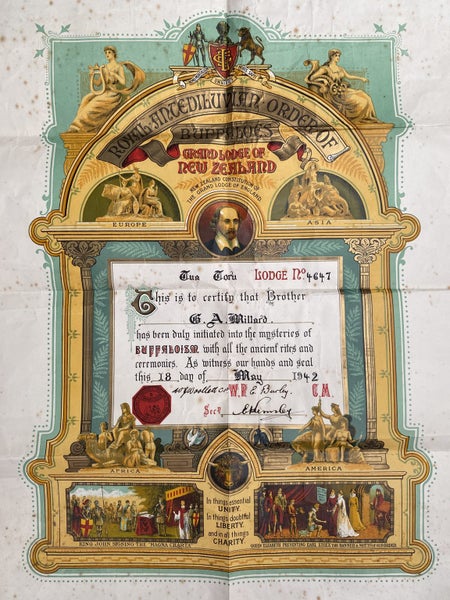 ROYAL ANTEDILUVIAN ORDER OF
BUFFALOES
GRAND LODGE OF
NEW ZEALAND
NEW ZEALAND CONSTITUTION OF
THE GRAND LODGE OF ENGLAND
EUROPE
ASIA
Tua Toru LODGE No 4647
This is to certify that Brother
G. A. Millard
has been duly initiated into the mysteries of
BUFFALOISM with all the ancient rites and
ceremonies. As witness our hands and seal
this 18 day of May 1942
W.P. C.M.
Secy
AFRICA
AMERICA
In things essential
UNITY.
In things doubtful
LIBERTY.
and in all things
CHARITY.
KING JOHN SIGNING THE "MAGNA CHARTA"
QUEEN ELIZABETH PRESENTING EARL ESSEX